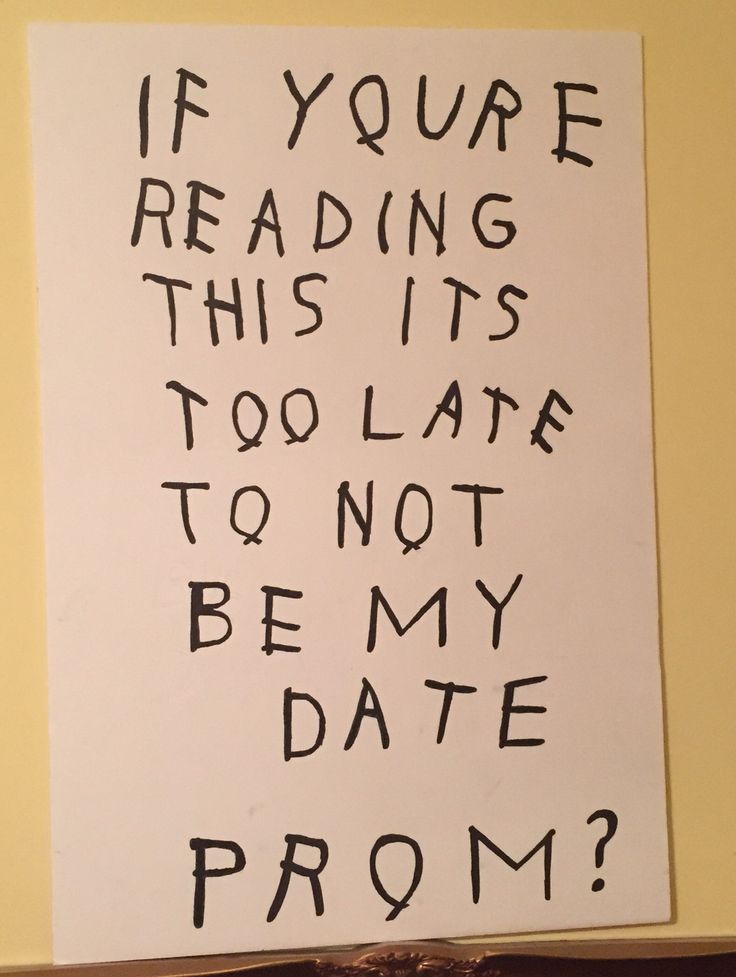 IF YOURE
READING
THIS ITS
TOO LATE
TO NOT
BE MY
DATE
PROM?